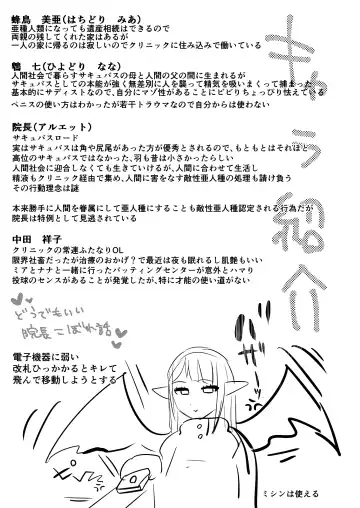 キャラ紹介
蜂鳥 美亜(はちどり みあ)
亜種人類になっても遺産相続はできるので
両親の残してくれた家はあるが
一人の家に帰るのは寂しいのでクリニックに住み込みで働いている
鵯 七(ひよどり なな)
人間社会で暮らすサキュバスの母と人間の父の間に生まれるが
サキュバスとしての本能が強く無差別に人を襲って精気を吸いまくって捕まった
基本的にサディストなので、自分にマゾ性があることにビビりちょっぴり怯えている
ペニスの使い方はわかったが若干トラウマなので自分からは使わない
院長(アルエット)
サキュバスロード
実はサキュバスは角や尻尾があった方が優秀とされるので、もともとはそれほど
高位のサキュバスではなかった、羽も昔は小さかったらしい
人間社会に迎合しなくても生きていけるが、人間に合わせて生活し
精液もクリニック経由で集め、人間に害をなす敵性亜人種の処理も請け負う
その行動理念は謎
本来勝手に人間を眷属にして亜人種にすることも敵性亜人種認定される行為だが
院長は特例として見逃されている
中田 祥子
クリニックの常連ふたなりOL
限界社畜だったが治療のおかげ?で最近は夜も眠れるし肌艶もいい
ミアとナナと一緒に行ったバッティングセンターが意外とハマり
投球のセンスがあることが発覚したが、特に才能の使い道がない
どうでもいい
院長こぼれ話
電子機器に弱い
改札ひっかかるとキレて
飛んで移動しようとする
ミシンは使える